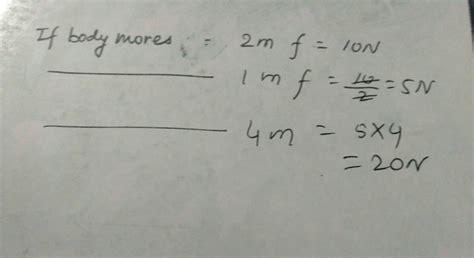 If body moves = 2m f = 10N
1m f = 10/2 = 5N
4m = 5×4
= 20N